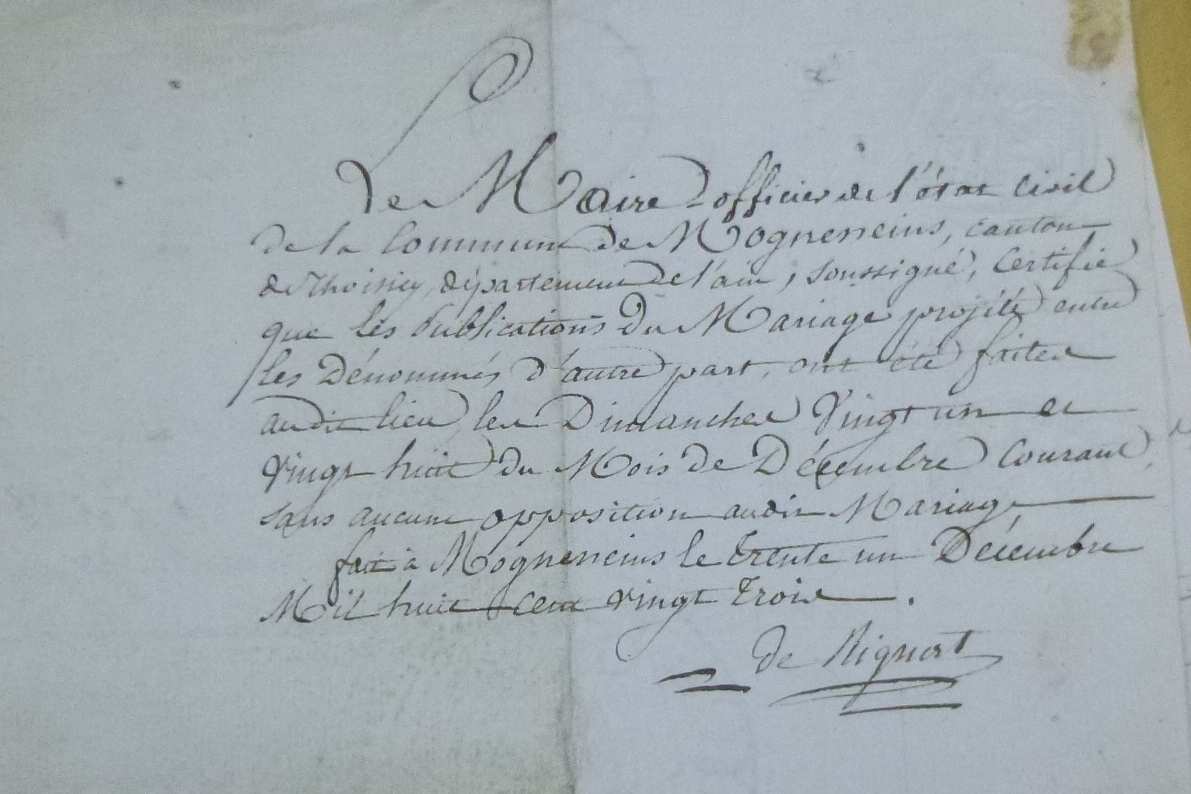 Le Maire officier de l'état Civil
de la Commune de Mogneneins, canton
de Thoissey, département de l'ain, soussigné, certifie
que les publications du Mariage projété entre
les Dénommés d'autre part, ont été faites
audit lieu, les Dimanches Vingt un et
vingt huit du Mois de Décembre Courant,
sans aucune opposition audit Mariage
fait à Mogneneins le trente un Décembre
Mil huit cent vingt trois.
de